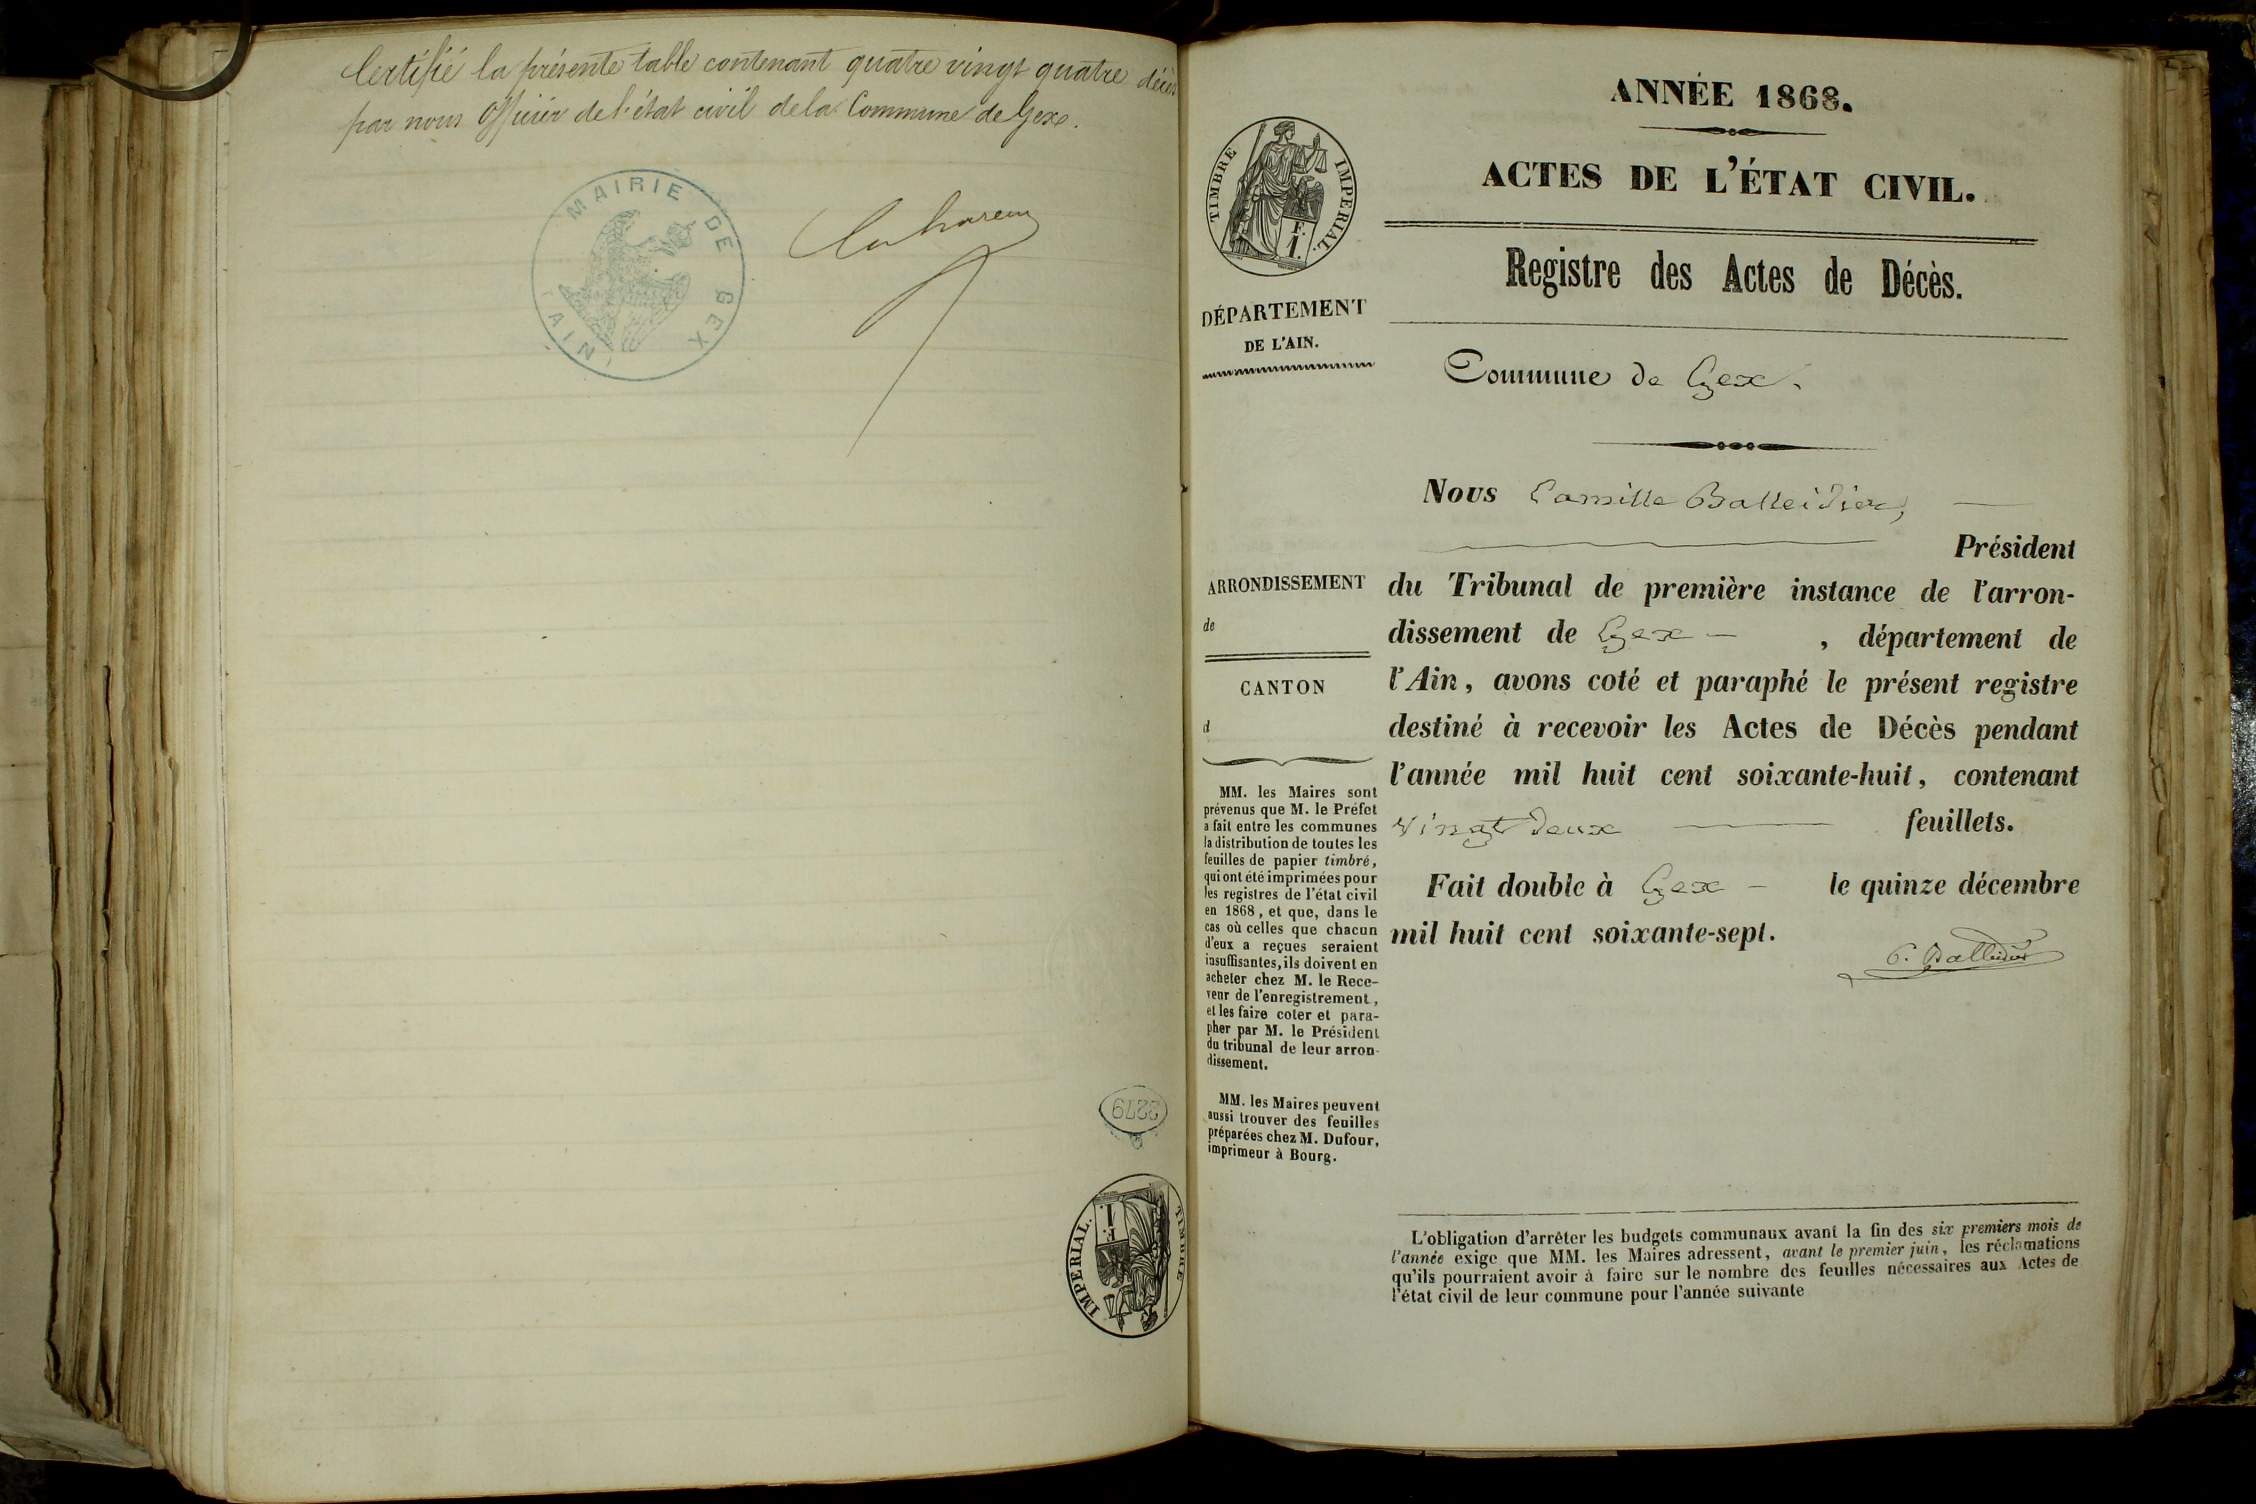 Certifié la présente table contenant quatre vingt quatre décès
par nous Officier de l'état civil de la Commune de Gex.
MAIRIE DE GEX
(AIN)
2279
TIMBRE IMPÉRIAL.
F.
1.
ANNÉE 1868.
ACTES DE L'ÉTAT CIVIL.
TIMBRE IMPÉRIAL.
F.
1.
Registre des Actes de Décès.
DÉPARTEMENT
DE L'AIN.
Commune de Gex.
Nous Camille Balleidier,
Président
du Tribunal de première instance de l'arron-
dissement de Gex — , département de
l'Ain, avons coté et paraphé le présent registre
destiné à recevoir les Actes de Décès pendant
l'année mil huit cent soixante-huit, contenant
vingt deux feuillets.
Fait double à Gex — le quinze décembre
mil huit cent soixante-sept.
C. Balleidier
ARRONDISSEMENT
de
CANTON
d
MM. les Maires sont
prévenus que M. le Préfet
a fait entre les communes
la distribution de toutes les
feuilles de papier timbré,
qui ont été imprimées pour
les registres de l'état civil
en 1868, et que, dans le
cas où celles que chacun
d'eux a reçues seraient
insuffisantes, ils doivent en
acheter chez M. le Rece-
veur de l'enregistrement,
et les faire coter et para-
pher par M. le Président
du tribunal de leur arron-
dissement.
MM. les Maires peuvent
aussi trouver des feuilles
préparées chez M. Dufour,
imprimeur à Bourg.
L'obligation d'arrêter les budgets communaux avant la fin des six premiers mois de
l'année exige que MM. les Maires adressent, avant le premier juin, les réclamations
qu'ils pourraient avoir à faire sur le nombre des feuilles nécessaires aux Actes de
l'état civil de leur commune pour l'année suivante